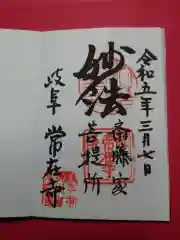 令和五年三月七日
斎藤家
妙法
菩提所
岐阜
常在寺